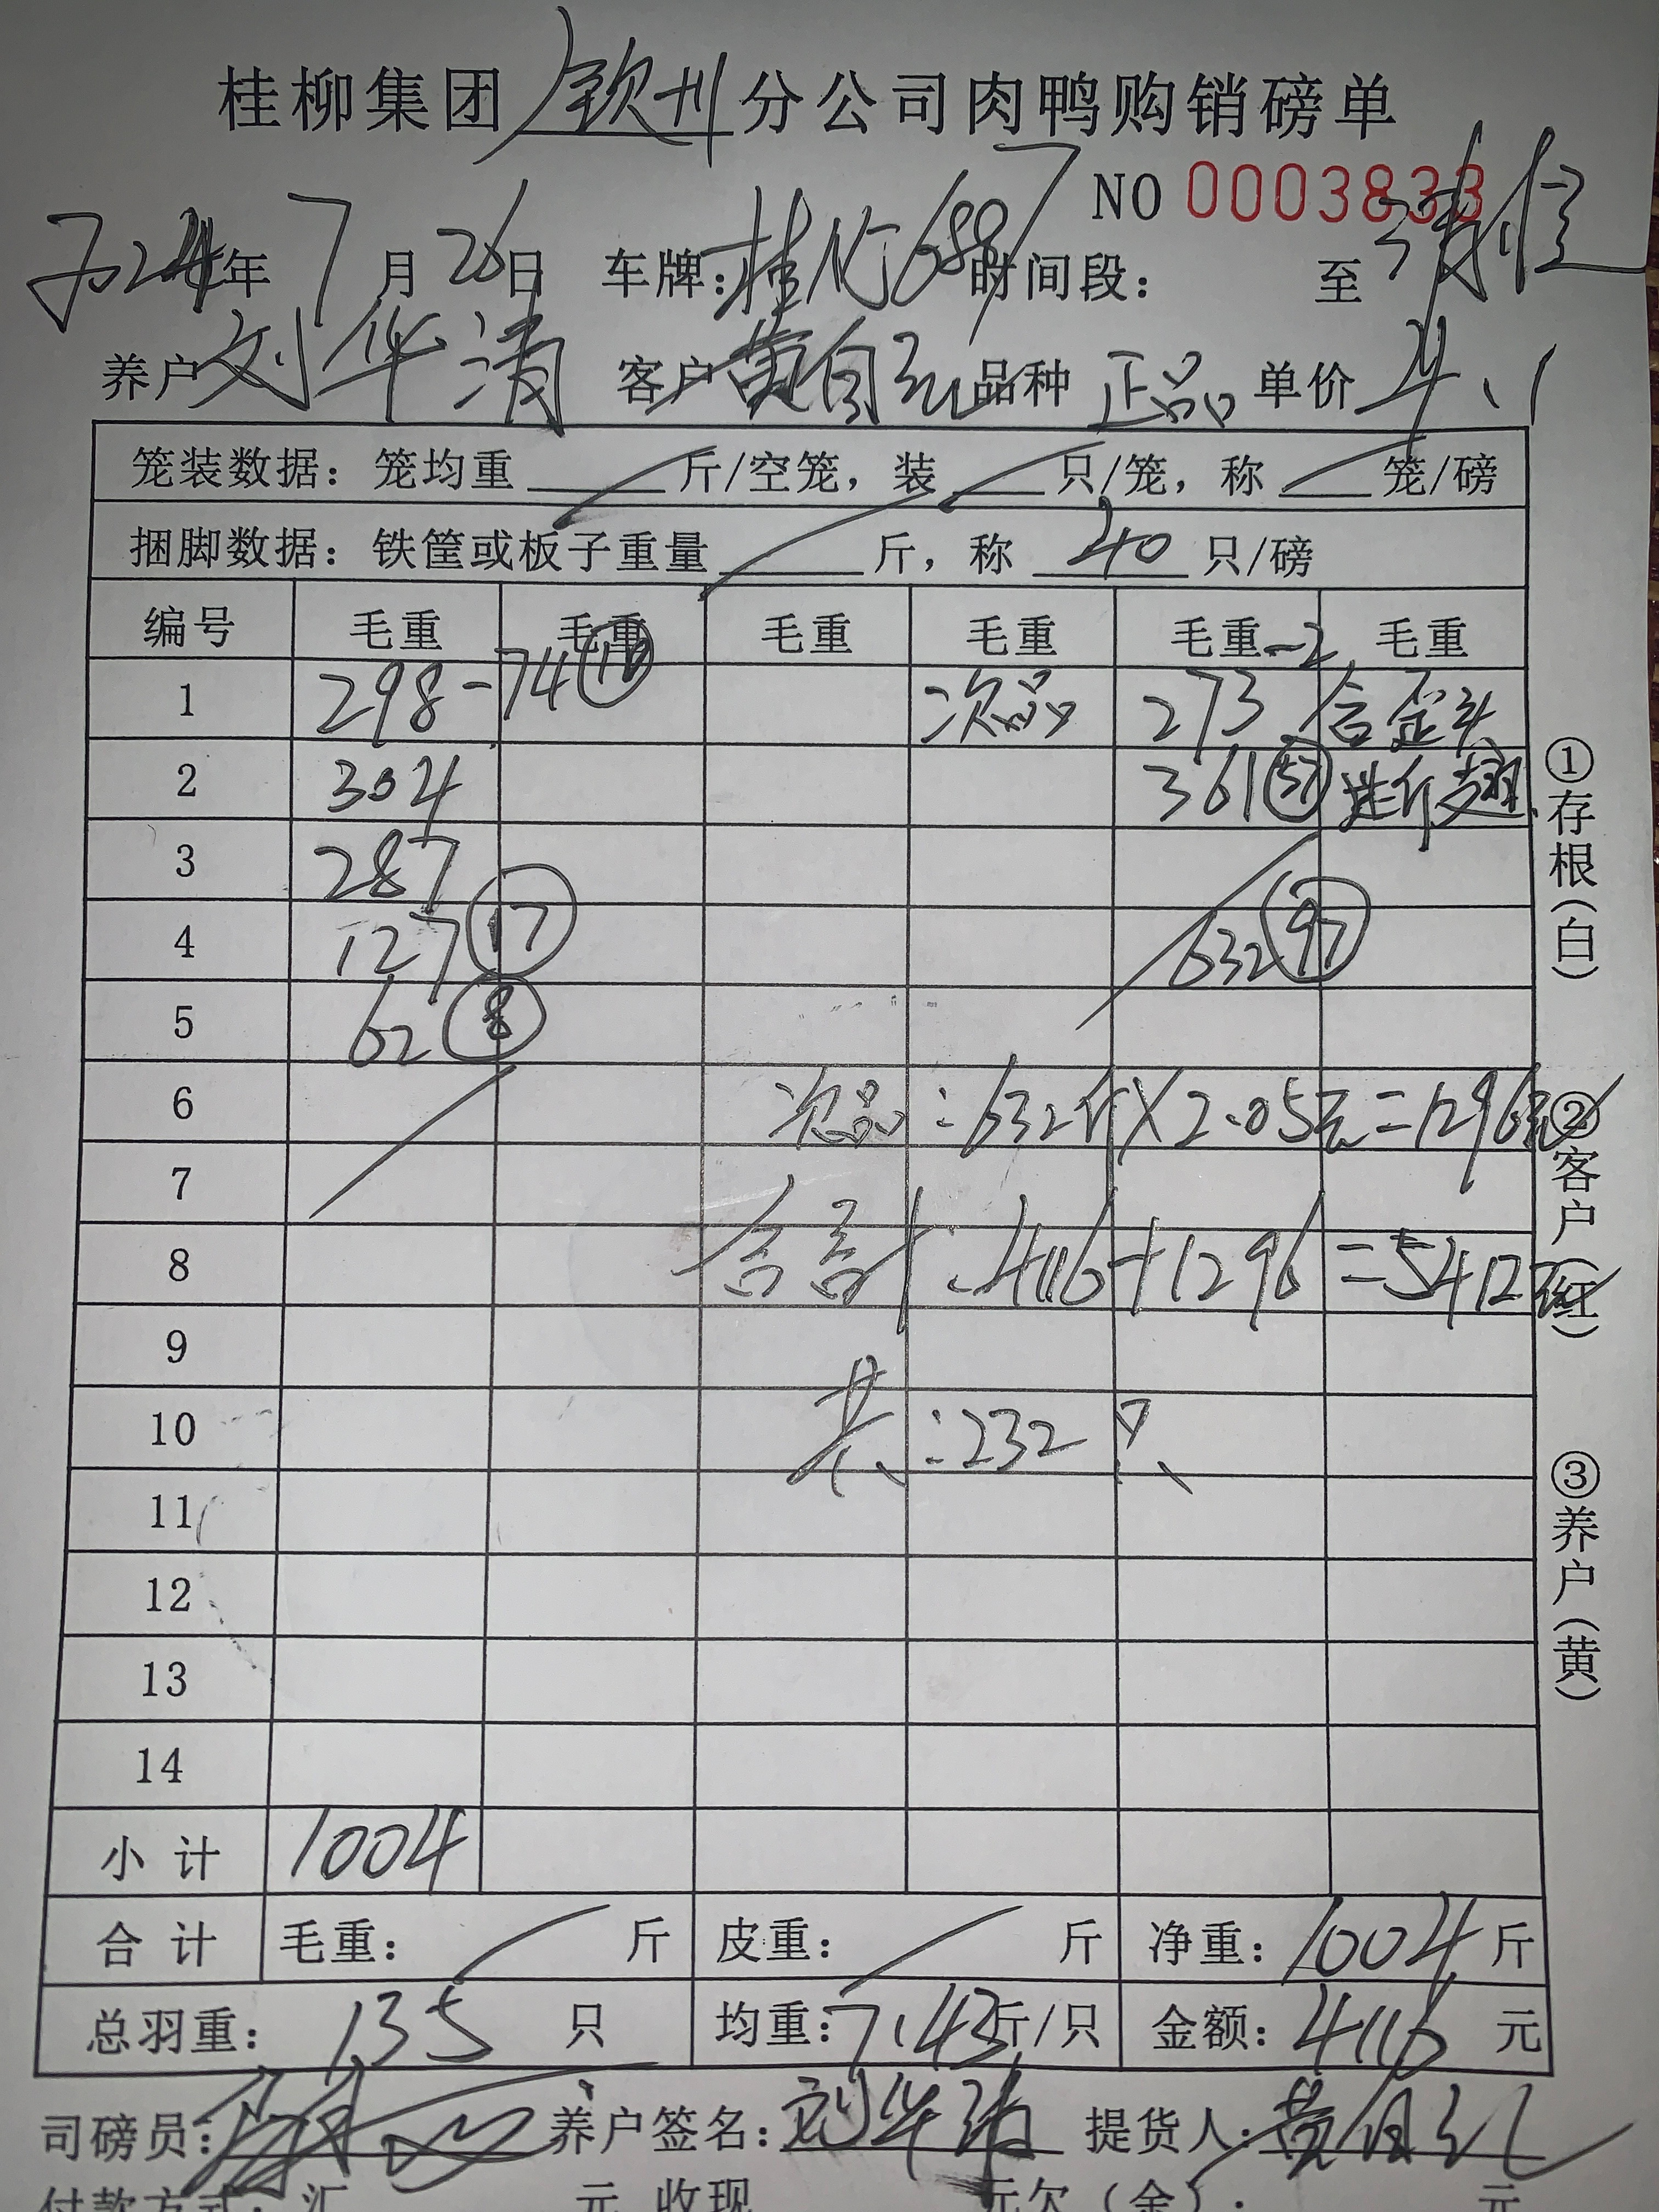 桂柳集团钦州分公司肉鸭购销磅单
NO 0003833
2024年7月26日 车牌：桂 6887 时间段： 至 清恒
养户刘华清 客户黄自 品种 正品 单价 4.1
笼装数据：笼均重 斤/空笼，装 只/笼，称 笼/磅
捆脚数据：铁筐或板子重量 斤，称 40 只/磅
编号 毛重 毛重 毛重 毛重 毛重 毛重
1 298-74 ⑩ 次品 273-2 含歪头
2 304 361 57 翅
3 287
4 127 17 632 97
5 62 8
6 次品：632斤×2.05元=1296元
7
8 合计：4116+1296=5412元
9
10 共：232只
11
12
13
14
小计 1004
合计 毛重： 斤 皮重： 斤 净重：1004斤
总羽重：135 只 均重：7.43斤/只 金额：4116 元
司磅员： 养户签名：刘华清 提货人：黄自
付款方式：汇 元 收现 元欠（金）： 元
①存根（白）
②客户（红）
③养户（黄）